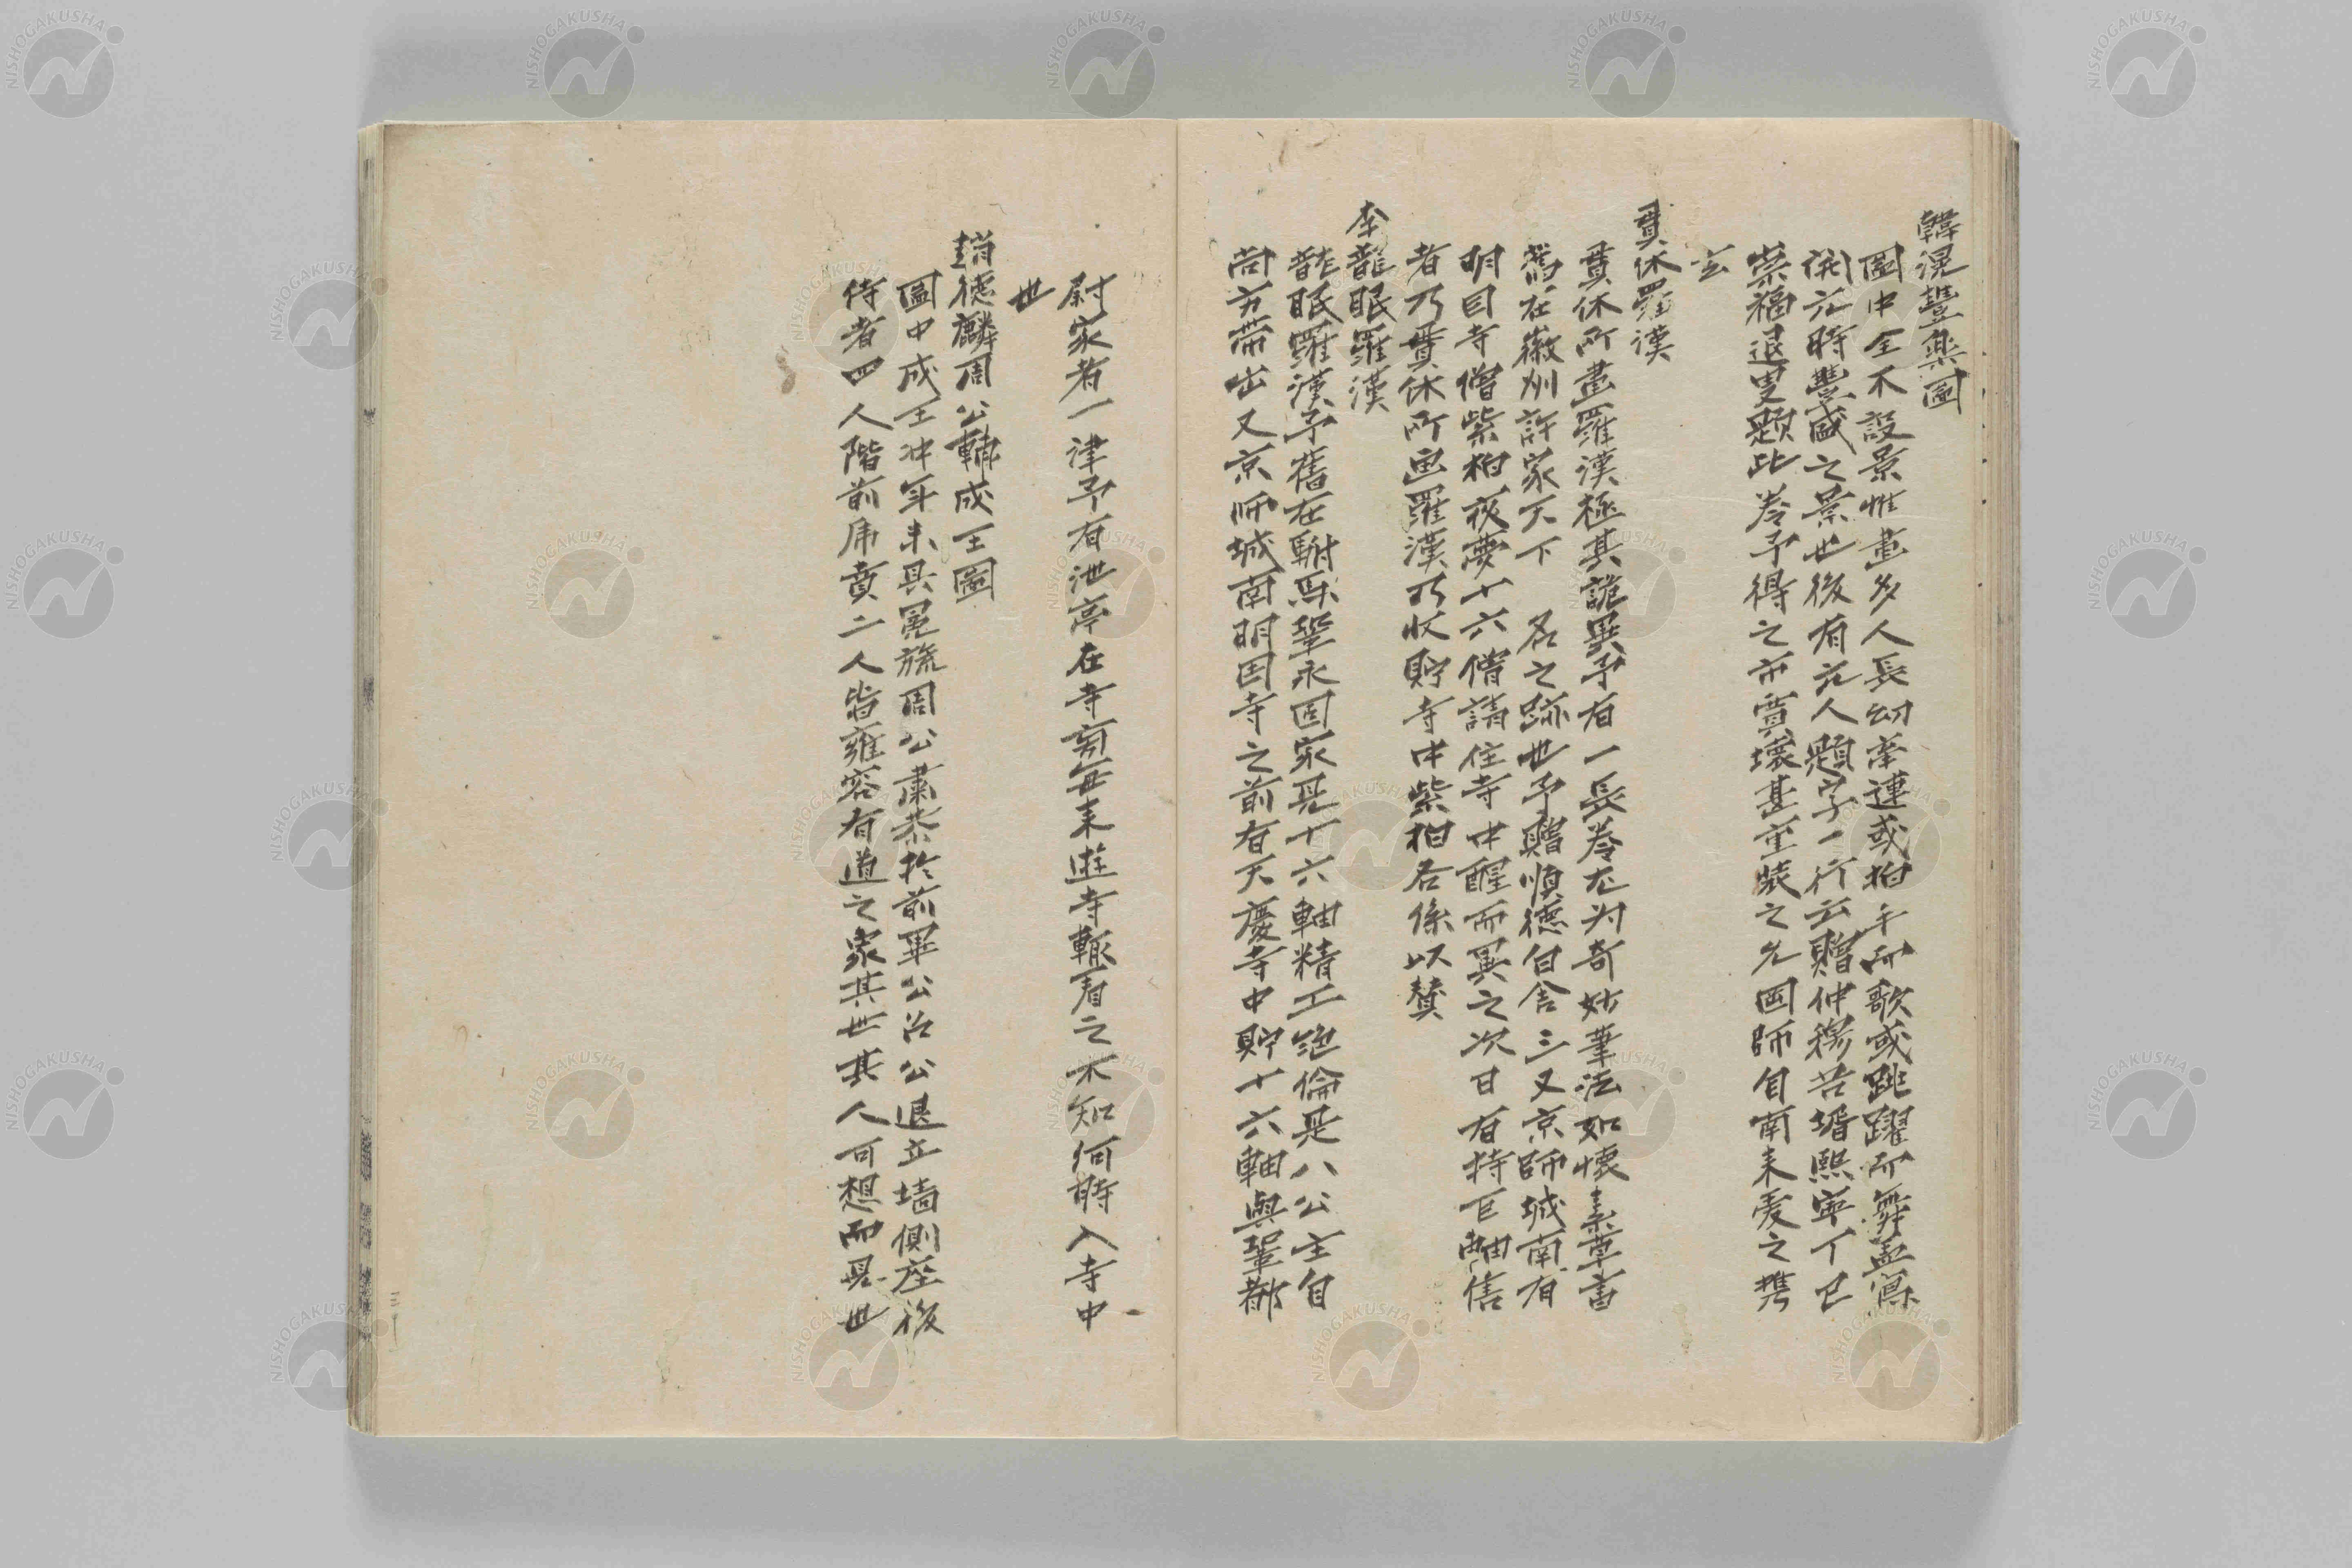 韓滉豐樂圖
圖中全不設景惟畫多人長幼牽連或拍手而歌或跳躍而舞盖寫
開元時豐盛之景也後有元人題字一行云贈仲穆苕壻熙寧丁巳
崇福退叟題此卷予得之而賣壊甚重裝之允囬師自南来爱之携
去
貫休羅漢
貫休所畫羅漢極其詭異予有一長卷尤为奇妙筆法如懷素草書
舊在徽州許家天下名之跡也予贈慎德自舍三又京師城南有
明因寺僧紫柏夜夢十六僧請住寺中醒而異之次日有持巨軸售
者乃貫休所画羅漢乃收貯寺中紫柏各係以賛
李龍眠羅漢
龍眠羅漢予舊在駙馬鞏永固家見十六軸精工絶倫是八公主自
尚方帶出又京師城南明因寺之前有天慶寺中貯十六軸與鞏都
尉家者一律予有池亭在寺旁每来遊寺輒看之不知何時入寺中
也
趙德麟周公輔成王圖
圖中成王冲年未具冕旒周公肅恭扵前畢公召公退立墙側座後
侍者四人階前虎賁二人皆雍容有道之象其世其人可想而見也
三